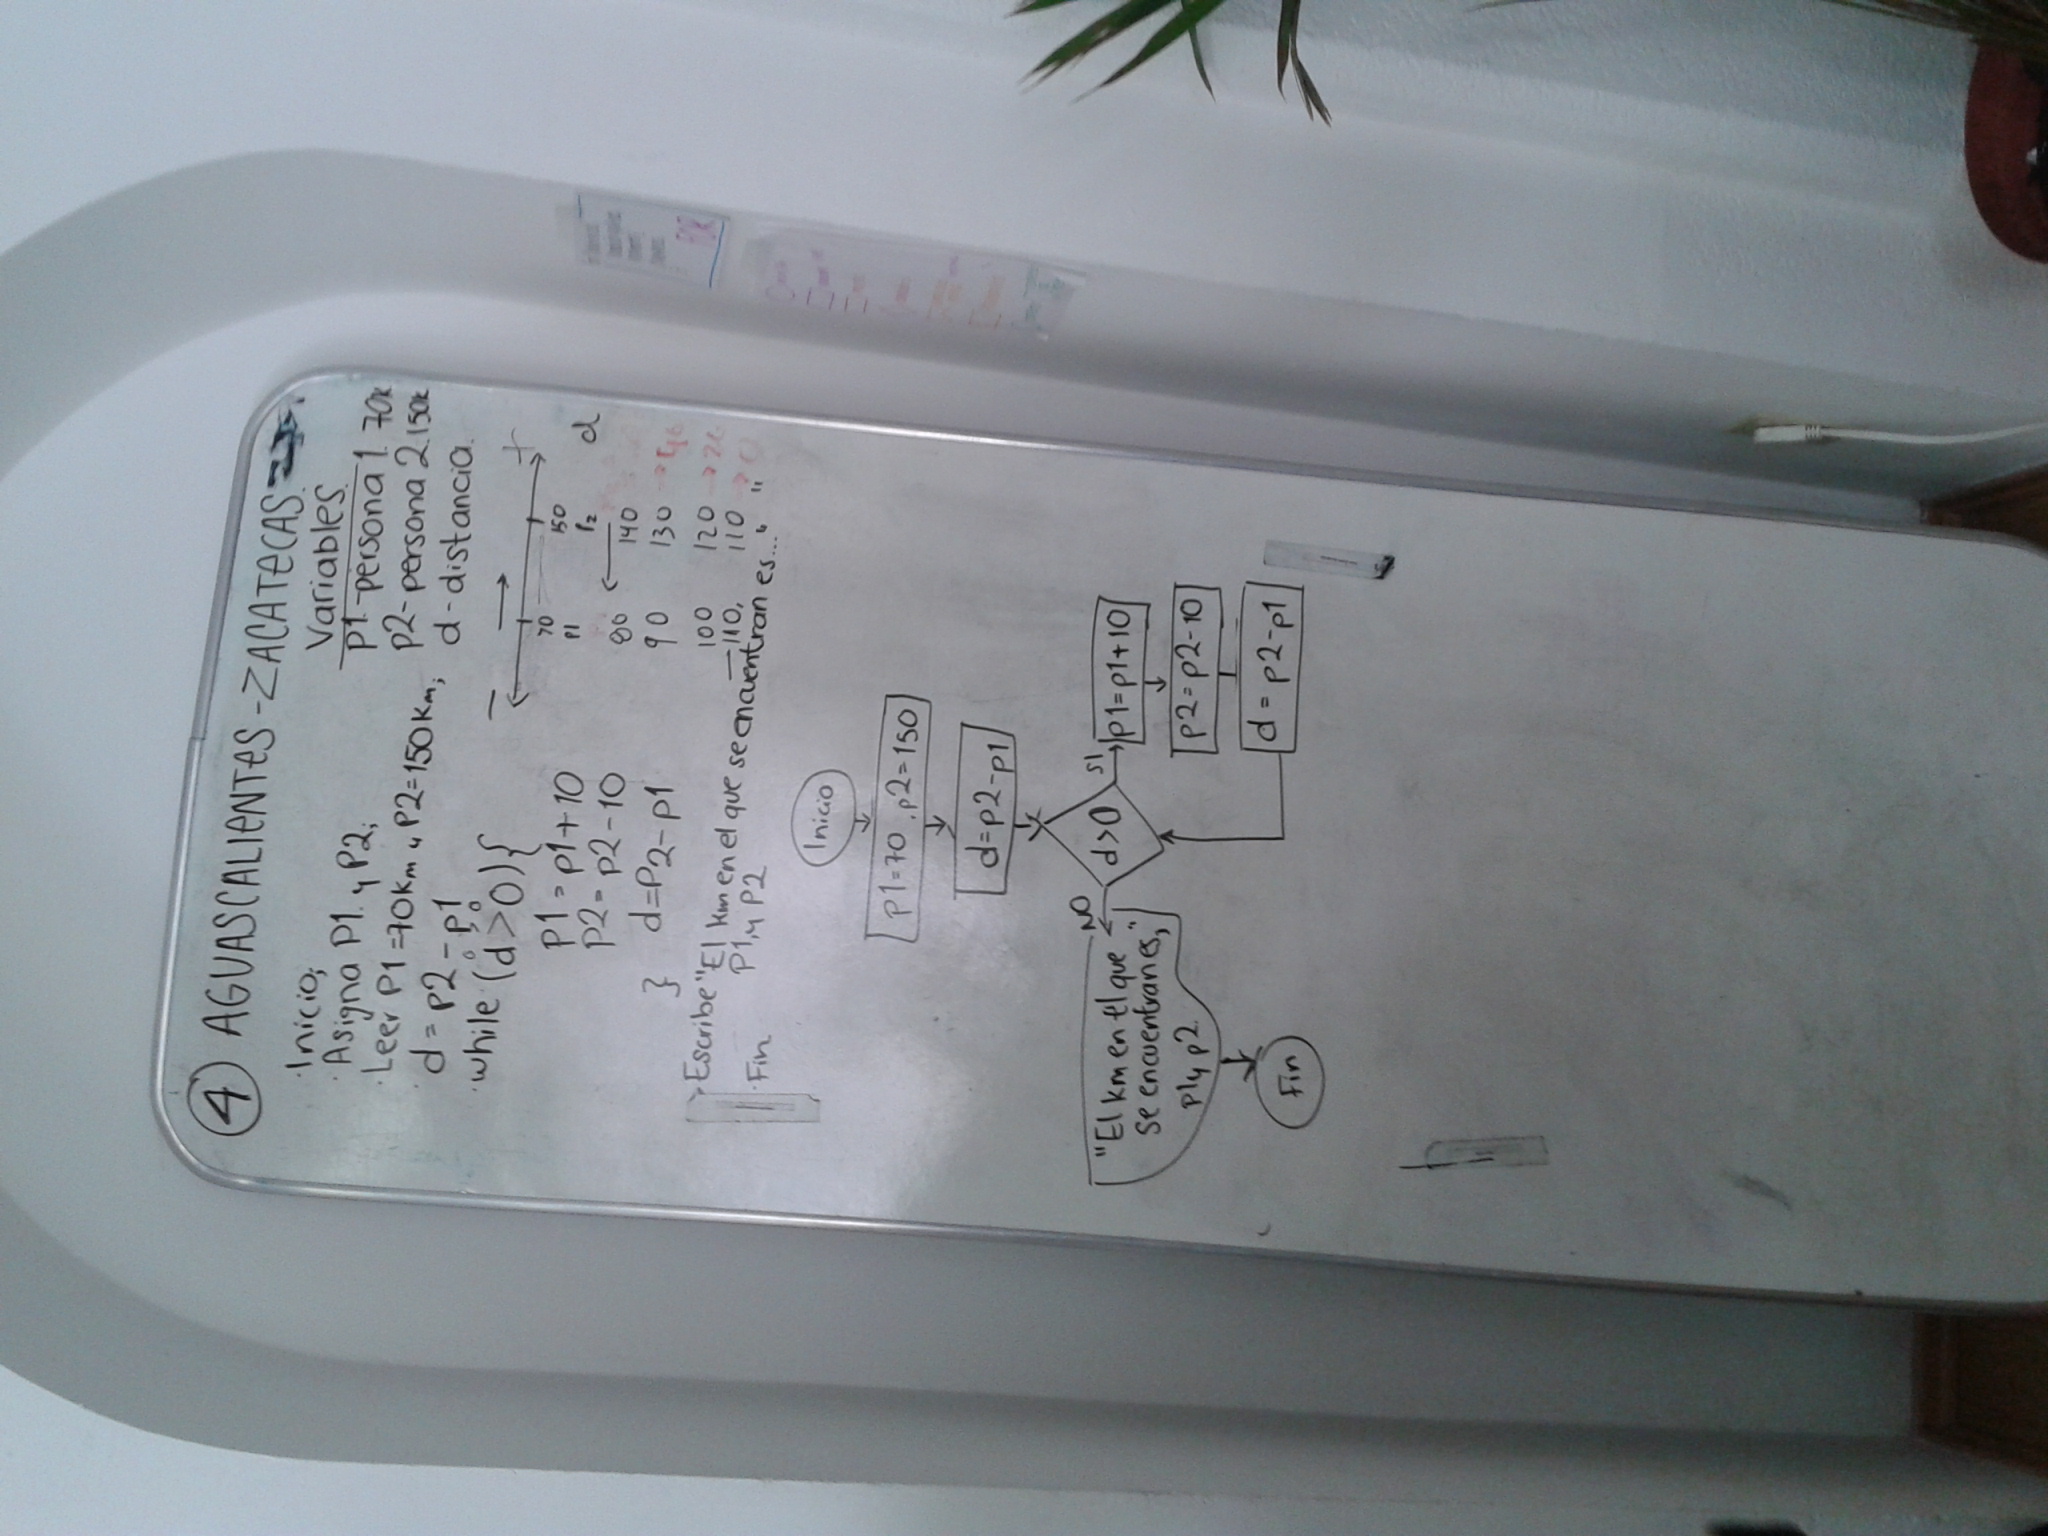 4 AGUASCALIENTES - ZACATECAS.
· Inicio;
· Asigna P1. y P2;
· Leer P1 = 70 Km y P2 = 150 Km;
d = p2 - p1
· while (d > 0) {
p1 = p1 + 10
p2 = p2 - 10
} d = P2 - p1
· Escribe "El km en el que se encuentran es..."
P1, y P2
· Fin
Variables.
P1 - persona 1. 70k
p2 - persona 2. 150k
d - distancia.
− +
70 150
P1 P2 d
80 140
90 130 → 40
100 120 → 20
110, 110 → 0
"
Inicio
p1 = 70, p2 = 150
d = p2 - p1
d > 0
NO
SI
p1 = p1 + 10
p2 = p2 - 10
d = p2 - p1
"El km en el que
se encuentran es,"
p1 y p2.
Fin